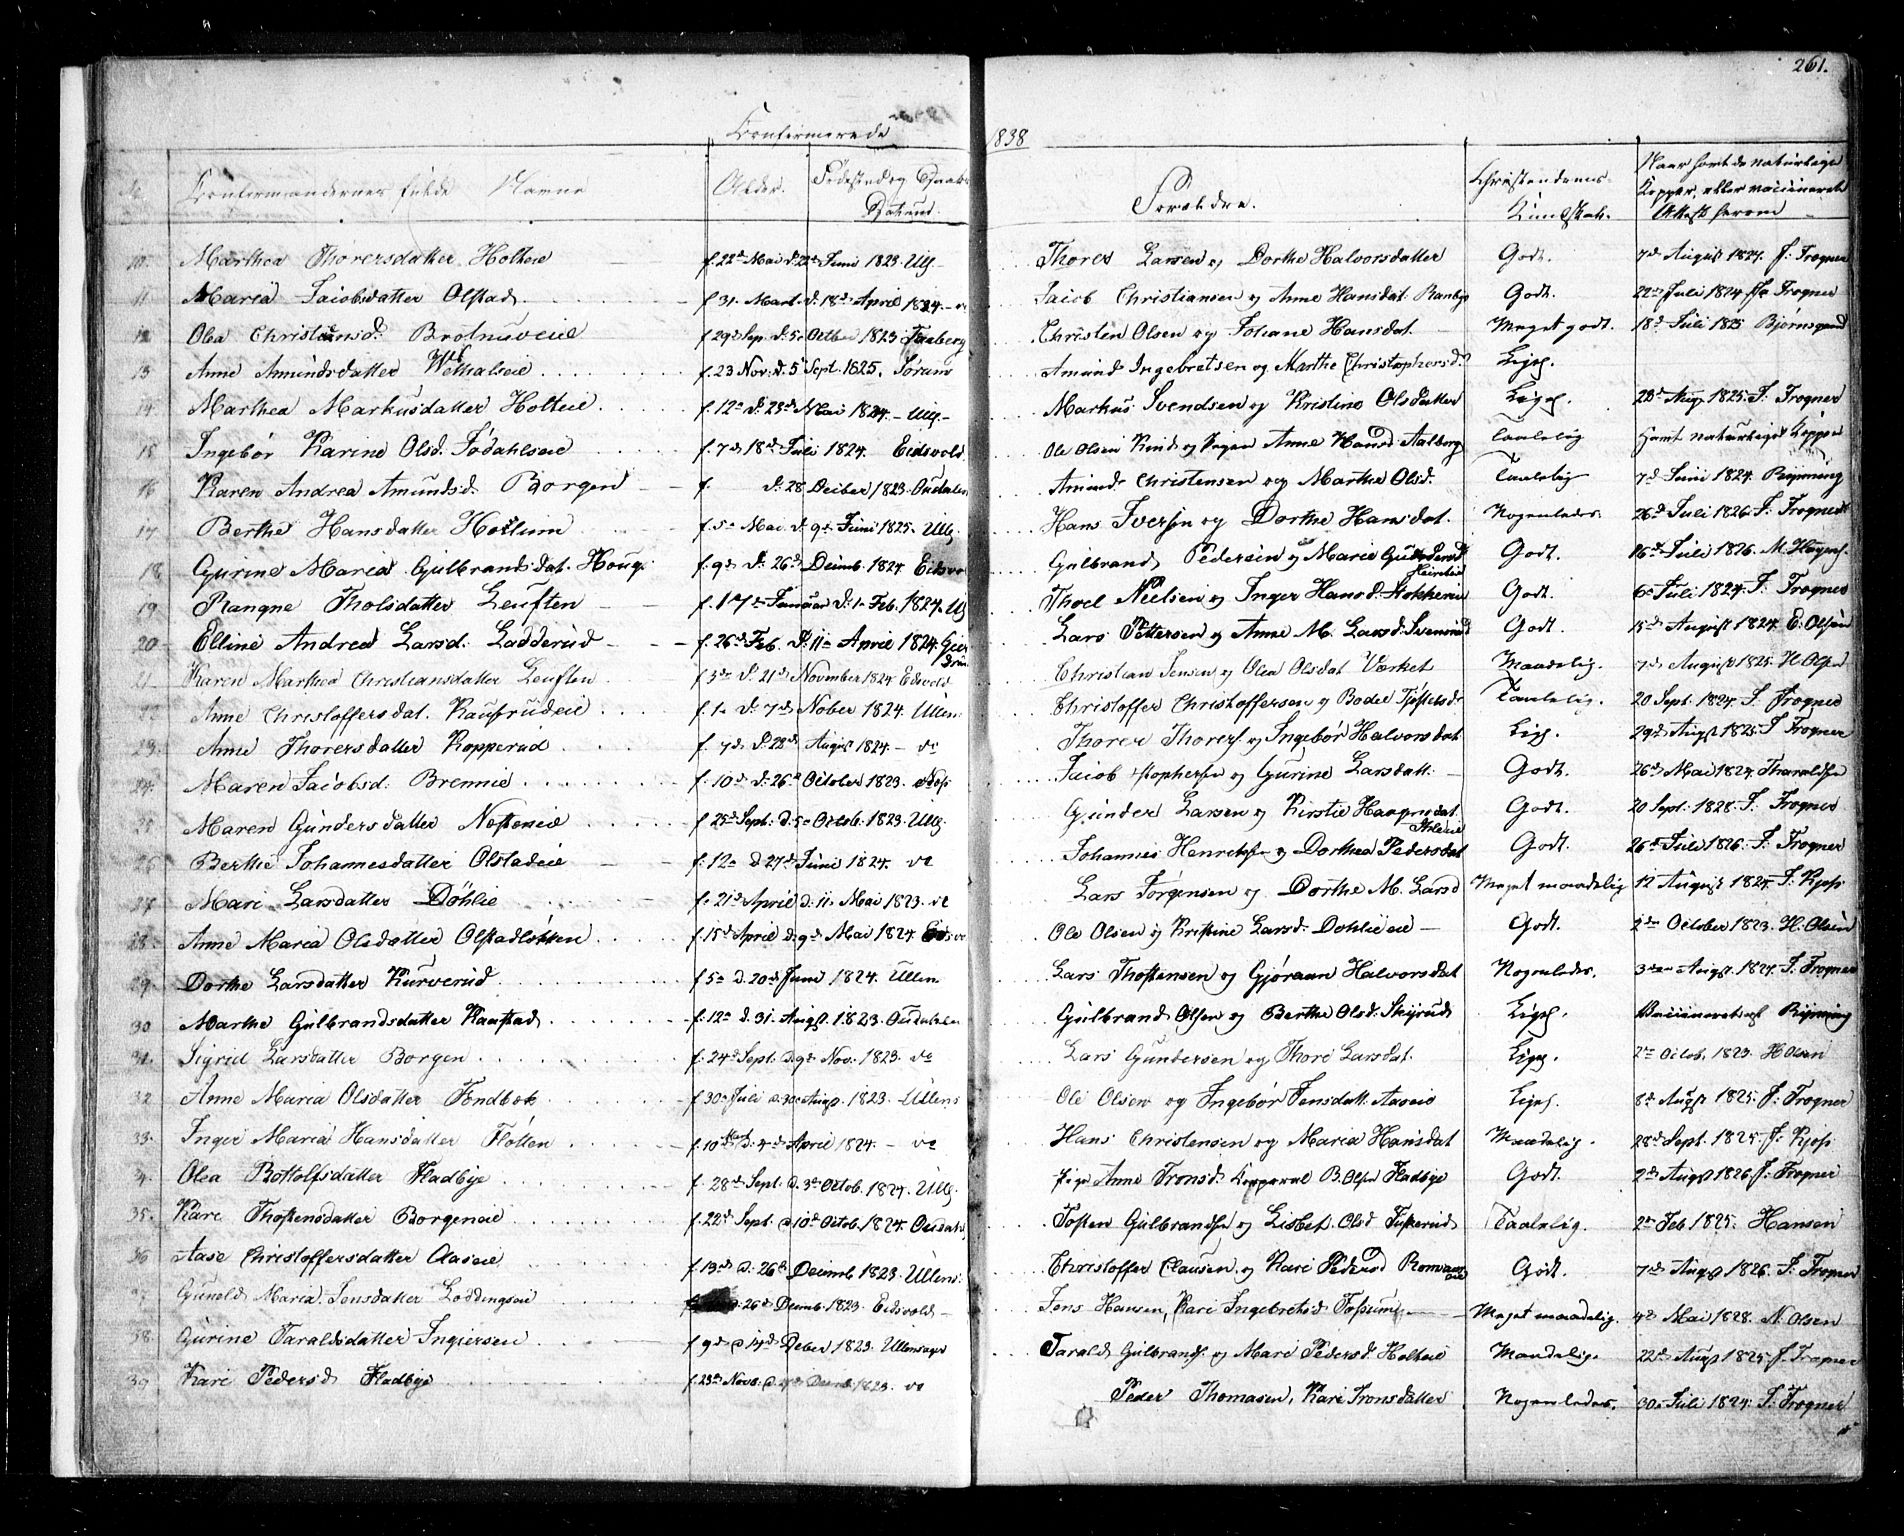 261.
Confirmerede 1838
Confirmandernes fulde Navne Alder. Fødested og Daabs Datum. Forældre. Christendoms Kundskab. Naar havt de naturlige Kopper, eller vaccineret Attest herom
10. Marthea Thorersdatter Holteie f. 22de Mai d. 22de Juni 1823 Ull. Thores Larsen og Dorthe Halvorsdatter Godt. 7de August 1824 J. Trogner
11 Maria Jacobsdatter Olstad f 31. Mart. d. 18de April 1824 - do Jacob Christiansen og Anne Hansdat. Godt. 22de Juli 1824 J. Trogner
12 Olea Christiansd. Brotnuveie f 29de Sep. d. 5te Octber 1823 Faaberg Christen Olsen og Johane Hansdat. Meget godt. 18de Juli 1825
13. Anne Amundsdatter f. 23 Nov. d. 5 Sept. 1825. Sørum Amund Ingebretsen og Marthe Christophersd. Ligs.
14. Marthea Markusdatter Holteie f. 12te d. 23de Mai 1824. - Ull. Markus Svendsen og Kristine Olsdatter Ligs. 23de Aug. 1825 J. Trogner
15 Ingebør Karine Olsd. Jødahlseie f. 7de 18de Juli 1824. Eidsvold Ole Olsen og Pigen Anne Hansd. Aalborg Taalelig Havt naturlige Kopper
16 Karen Andrea Amundsd. Borgen f. d. 28 Decber 1823. Oudalen Amund Christensen og Marthe Olsd. Taalelig 7de Juni 1824
17 Berthe Hansdatter f. 5te Mai d. 9de Juni 1825. Ull. Hans Iversen og Dorthe Hansdat. Nogenledes. 26de Juli 1826 J. Trogner
18 Gurine Maria Gulbrandsdat. Houg. f. 9de d. 26de Decemb. 1824 Eidsvo Gulbrand Pedersen og Marie Godt. 16de Juli 1826.
19 Rangne Tholsdatter Leuften f. 17de Januar d. 1te Feb. 1824. Ull Thoel Nielsen og Inger Hansd. Godt. 6te Juli 1824 J. Trogner
20 Elline Andrea Larsd. Ladderud f. 26de Feb. d. 11te April 1824. Lars Pettersen og Anne M. Larsd. Godt. 15de August 1824. E. Olsen
21 Karen Marthea Christiansdatter Leuften f 3de d. 21de November 1824 Eidsvold Christian Jensen og Olea Olsdat Værket Maadelig. 7de August 1825. H. Olsen
22 Anne Christoffersdat. f. 1te d. 7de Nober 1824. Ullens Christoffer Christoffersen og Bodel Taalelig. 20 Sept. 1824. J. Trogner
23. Anne Thorersdatter Kopperud f. 7de d. 22de August 1824. - do Thorer Thorers. og Ingebør Halvorsdat Ligs. 29de Augst 1825 J Trogner
24. Maren Jacobsd. Brennie f. 10de d. 26de October 1823. Jacob og Gurine Larsdatt. Godt. 26de Mai 1824.
25 Maren Gundersdatter f 25de Sept. d. 5te Octob. 1823. Ull. Gunder Larsen og Kirstie Godt. 20 Sept. 1828. J. Trogner
26 Berthe Johannesdatter Olstadeie f. 12te d 27de Juni 1824. do Johannes og Dorthea Pedersdat Godt. 26de Juli 1826. J. Trogner
27 Mari Larsdatter Døhlie f. 21de April d. 11te Mai 1823. do Lars Jørgensen og Dorthe M. Larsd Meget maadelig 12 August 1824. J. Kjos
28 Anne Maria Olsdatter Olstadløkken f. 15de April d. 9de Mai 1824. Eidsvo Ole Olsen og Kristine Larsd. Dohlieeie Godt. 2de October 1823. H. Olsen
29. Dorthe Larsdatter Kurverud f 5te d. 20de Juni 1824. Ullens Lars Thostensen og Gjøraan Halvorsdat Nogenledes. 3de Augst. 1824. J. Trogner
30 Marthe Gulbrandsdatter Kaastad f. 12te d. 31. Augst. 1823. Oudalen Gulbrand Olsen og Berthe Olsd. Skjrud Ligs.
31. Sigrid Larsdatter Borgen f. 24de Sept. d. 9de Nov. 1823. do Lars Gundersen og Thore Larsdat. Ligs. 2de Octob. 1823. H Olsen
32 Anne Maria Olsdatter Fondbek f. 30te Juli d. 30te Augst. 1823. Ullens Ole Olsen og Ingebør Jensdatt. Aaseie Ligs. 8de Augst 1825. J. Trogner
33. Inger Maria Hansdatter Floten f. 10de Mart. d. 4de April 1824. - do Hans Christensen og Maria Hansdat Maadelig. 28de Sept. 1825. J. Kjos
34. Olea Bottolfsdatter Fladbye f. 28de Sept. d. 3de Octob. 1824. Ull. Pige Anne Tronsd. Korporal B. Olsen Fladbye Godt. 2de Augst 1826 J. Trogner
35. Kari Thostensdatter Borgeneie f. 22de Sept. d 10de Octob. 1824. Oudals Tosten Gulbrands. og Lisbet Olsd. Taalelig. 2de Feb. 1825. Hansen
36 Aase Christoffersdatter Aaseie f. 13de d. 26de Decemb. 1823. Ullens. Christoffer Clausen og Kari Pedersd Godt. 7de Augst 1826. J. Trogner
37. Gunild Maria Jensdatter d. 26de Decemb. 1823. Eidsvold - Jens Hansen, Kari Ingebretsd. Fossum Meget maadelig. 4de Mai 1828. N. Olsen
38. Gurine Taraldsdatter Ingiersen f 9de d 14de Decber 1823. Ullensager Tarald Gulbrands. og Mari Pedersd. Holteie Maadelig. 22de Augst 1825 J. Trogner
39 Kari Pedersd Fladbye f. 23de Novb. d. Decemb. 1823. do Peder Thomasen, Kari Tronsdatter Nogenledes. 30te Juli 1824. J. Trogner